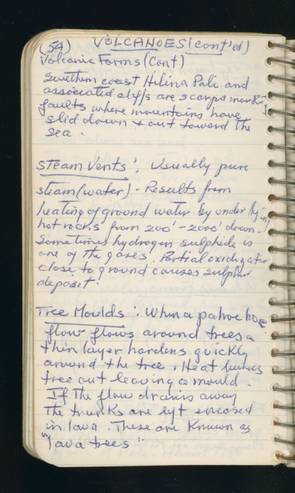 (54) VOLCANOES (cont'd)
Volcanic Forms (Cont)
Southern coast Hilina Pali and
associated cliffs are scarps marking
faults where mountains have
slid down & out toward the
sea.
STEAM VENTS: Usually pure
steam (water) - Results from
heating of ground water by underlying
hot rocks from 200' - 2000' down.
Sometimes hydrogen sulphide is
one of the gases. Partial oxidization
close to ground causes sulphur
deposit.
Tree Moulds: When a pahoehoe
flow flows around trees a
thin layer hardens quickly
around the tree. Heat burns
tree out leaving a mould.
If the flow drains away
the trunks are left encased
in lava. These are known as
"lava trees".